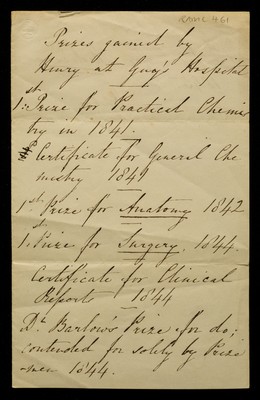 Prizes gained by
Henry at Guy's Hospital
1st Prize for Practical Chemis
try in 1841.
Certificate for General Che
mistry 1841
1st Prize for Anatomy 1842
1st Prize for Surgery, 1844.
Certificate for Clinical
Reports 1844
Dr Barlow's Prize for do;
contended for solely by Prize
-men 1844.